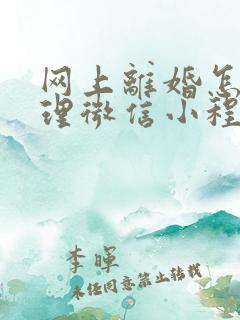 网上離婚怎
理微信小程
李暉
未任同意禁止转载